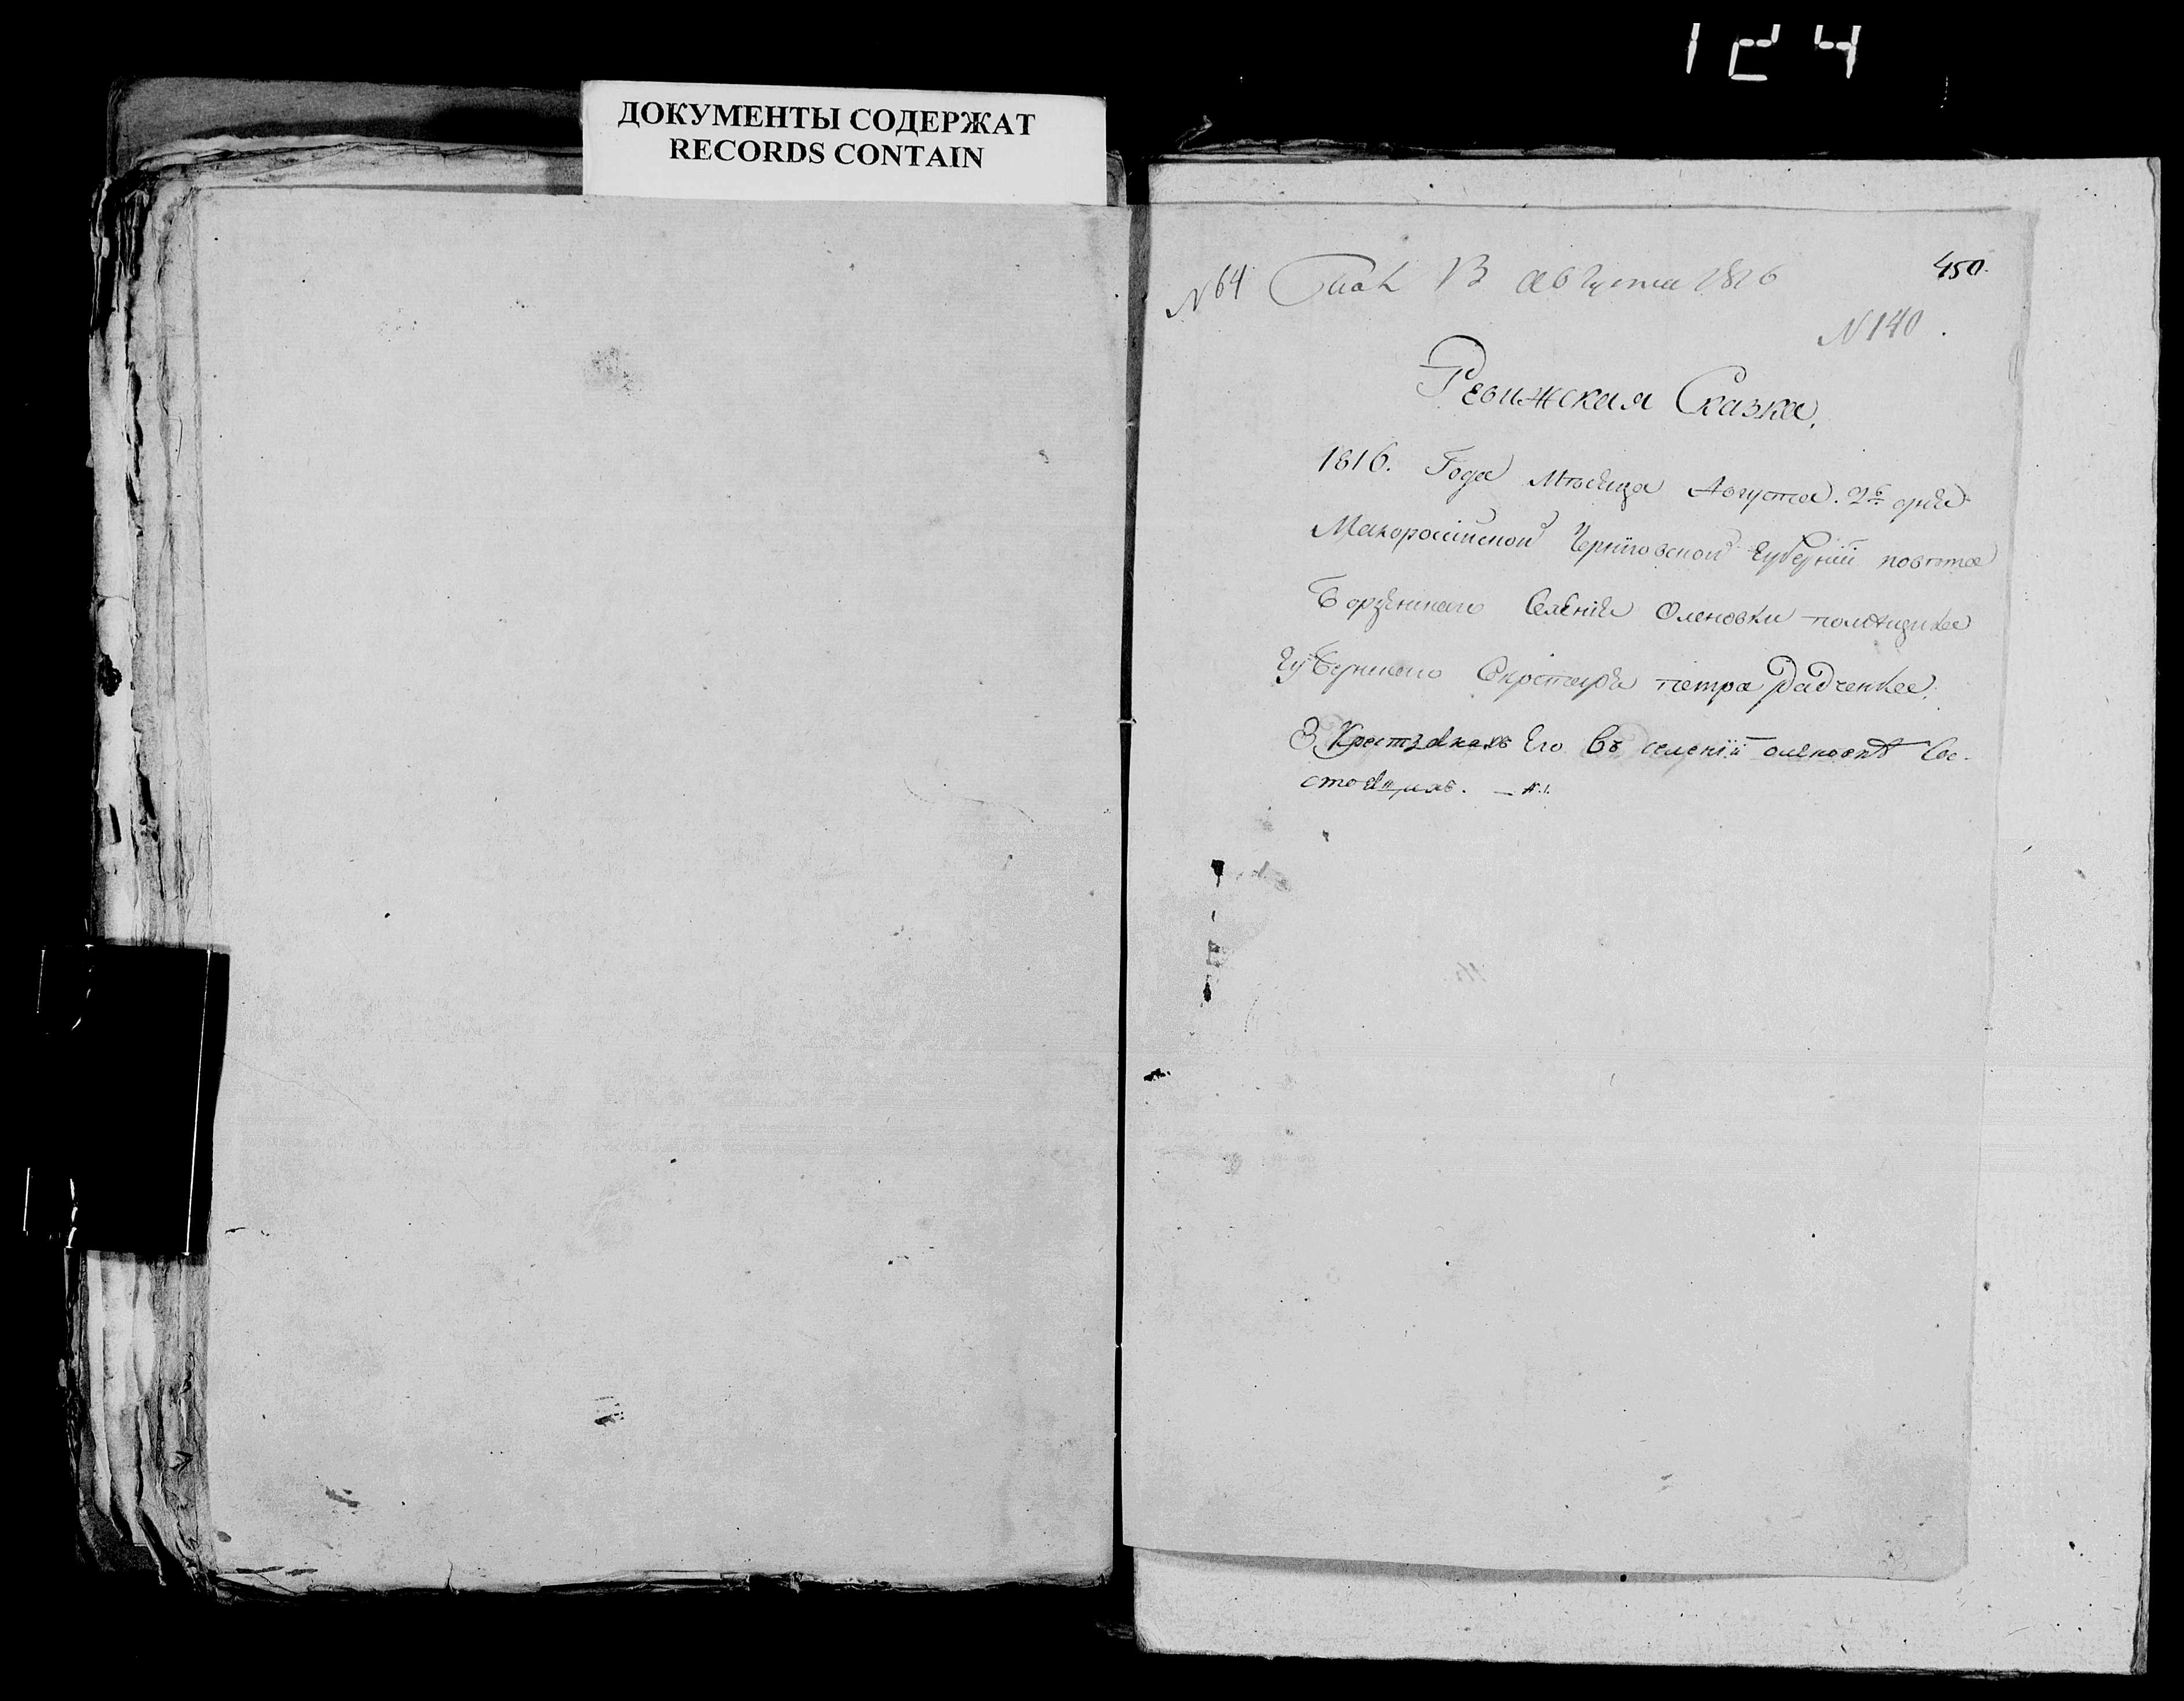 124
ДОКУМЕНТЫ СОДЕРЖАТ
RECORDS CONTAIN
450.
№ 64 13 августа 1816
№ 140.
Ревижская Сказка.
1816. Года Мѣсяца Августа. дня
Малоросийской Черниговской Губерніи повѣта
Борзенского Селенія Оленовки помѣщика
Губернского Секретаря Петра Радченка.
О Крестянахъ Его Въ селеніи оленовкѣ Со-
стоящихъ. —